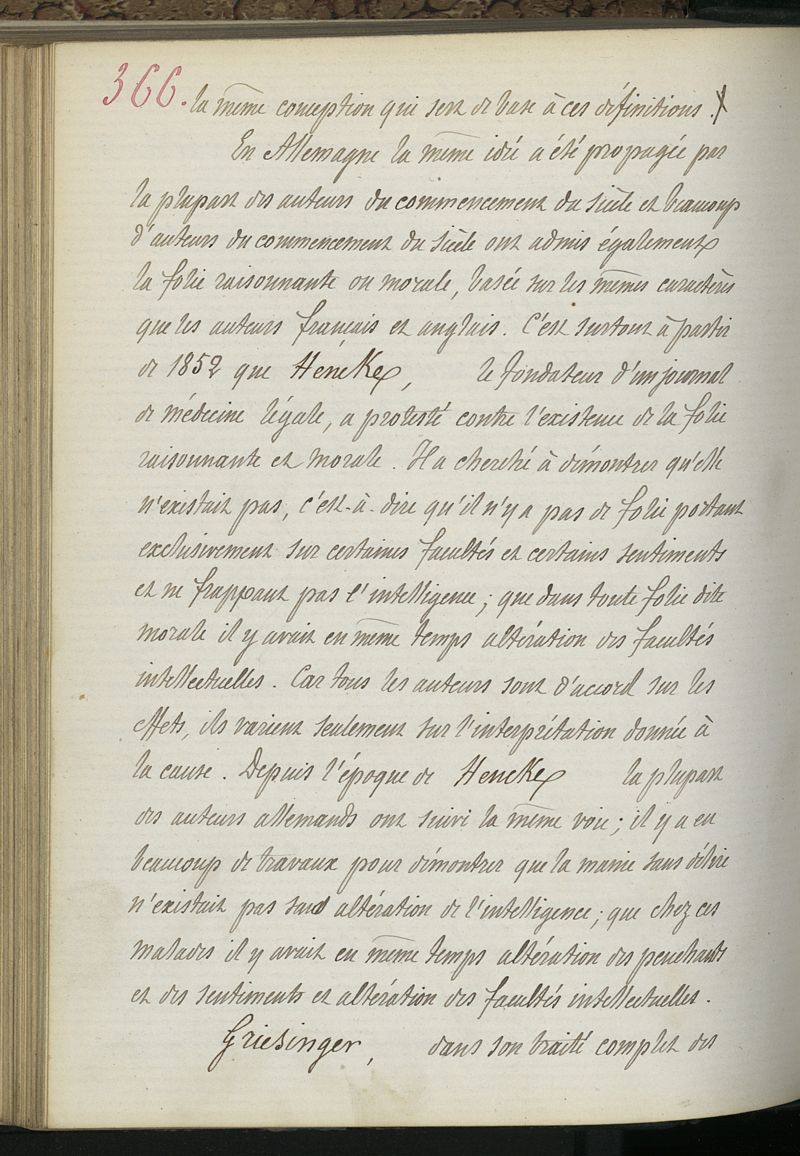 366. la même conception qui sert de base à ces définitions.
En Allemagne la même idée a été propagée par
la plupart des auteurs du commencement du siècle et beaucoup
d'auteurs du commencement du siècle ont admis également
la folie raisonnante ou morale, basée sur les mêmes caractères
que les auteurs français et anglais. C'est surtout à partir
de 1852 que Hencke, le fondateur d'un journal
de médecine légale, a protesté contre l'existence de la folie
raisonnante et morale. Il a cherché à démontrer qu'elle
n'existait pas, c'est-à-dire qu'il n'y a pas de folie portant
exclusivement sur certaines facultés et certains sentiments
et ne frappant pas l'intelligence; que dans toute folie dite
morale il y avait en même temps altération des facultés
intellectuelles. Car tous les auteurs sont d'accord sur les
effets, ils varient seulement sur l'interprétation donnée à
la cause. Depuis l'époque de Hencke la plupart
des auteurs allemands ont suivi la même voie; il y a eu
beaucoup de travaux pour démontrer que la manie sans délire
n'existait pas sans altération de l'intelligence; que chez ces
malades il y avait en même temps altération des penchants
et des sentiments et altération des facultés intellectuelles.
Griesinger, dans son traité complet des